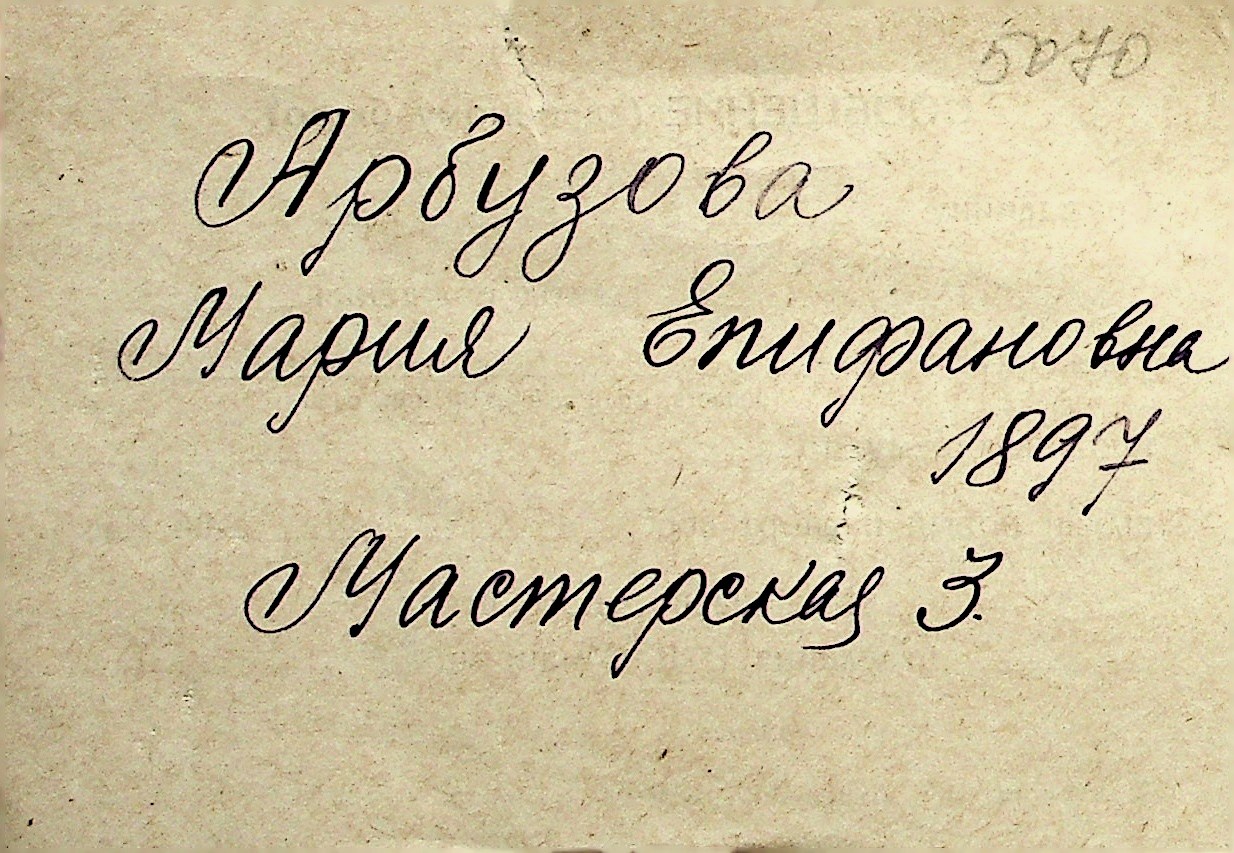 5070
Арбузова
Мария Епифановна
1897
Мастерская 3.